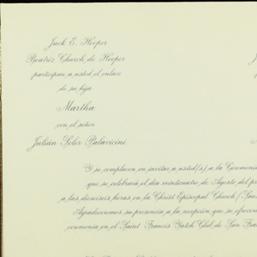 Jack E. Hooper
Beatriz Church de Hooper
participan a usted el enlace
de su hija
Martha
con el señor
Julián Soler Palavicini
y se complacen en invitar a usted(s) a la Ceremonia
que se celebrará el día veinticuatro de Agosto del p
a las dieciséis horas en la Christ Episcopal Church
Agradecemos su presencia a la recepción que se ofrecerá
ceremonia en el Saint Francis Yacht Club de San Fran